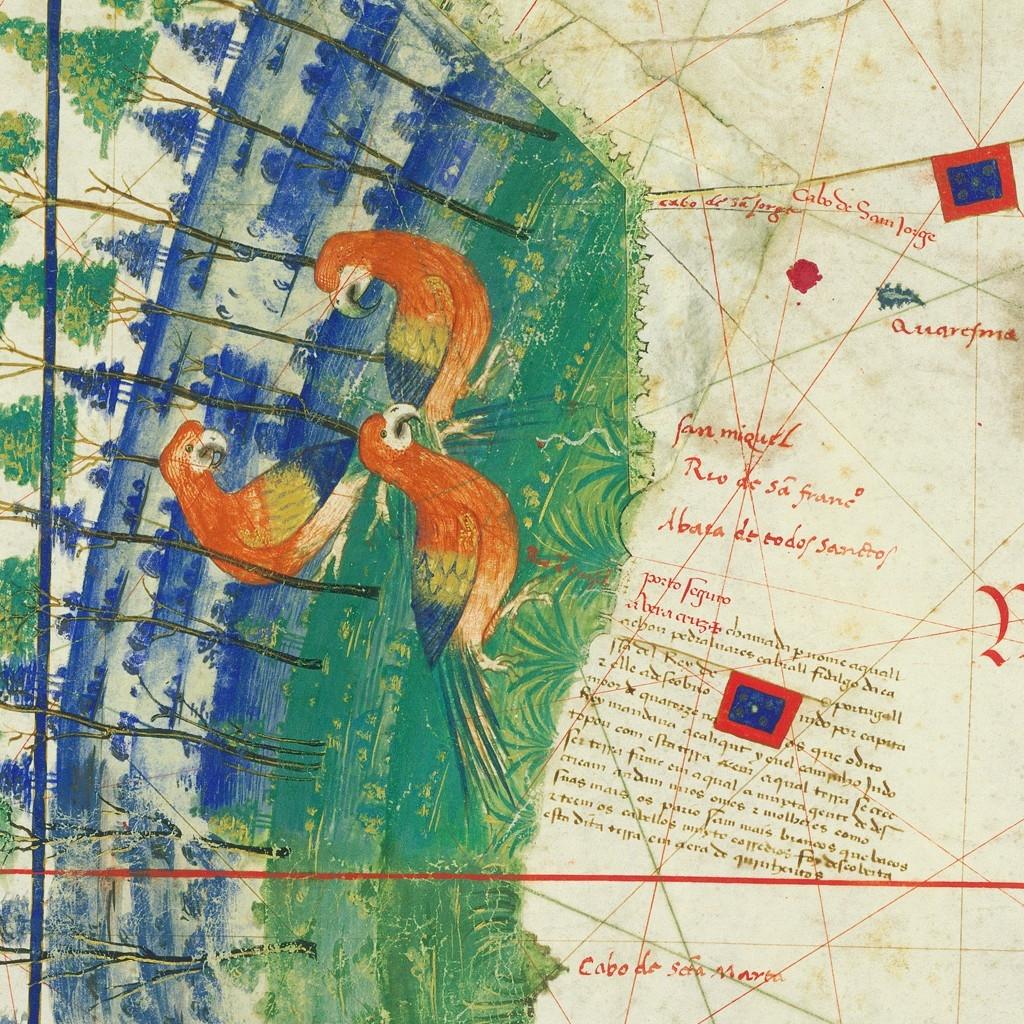 cabo de sã Jorge
Cabo de Sam Jorge
Quaresma
san miguel
Rio de sã franc°
Abaia de todos sanctos
porto seguro
a vera cruz + chamada p nome aquall
achou pedraluares cabrall fidalgo da ca
ssa del Rey de portugall
z elle a descobrio indo por capita
moor de quatorze naos que o dito
Rey mandaua a caliqut y en el caminho indo
topou com esta terra aqual terra se cree
ser terra firme em a qual a muyta gente de
andam nuos omes z molheres como
suas mais os pario sam mais brancos que bacos
z teem os cabellos muyto corredios foy descoberta
esta dita terra em aera de quinhentos
Cabo de scta Marta